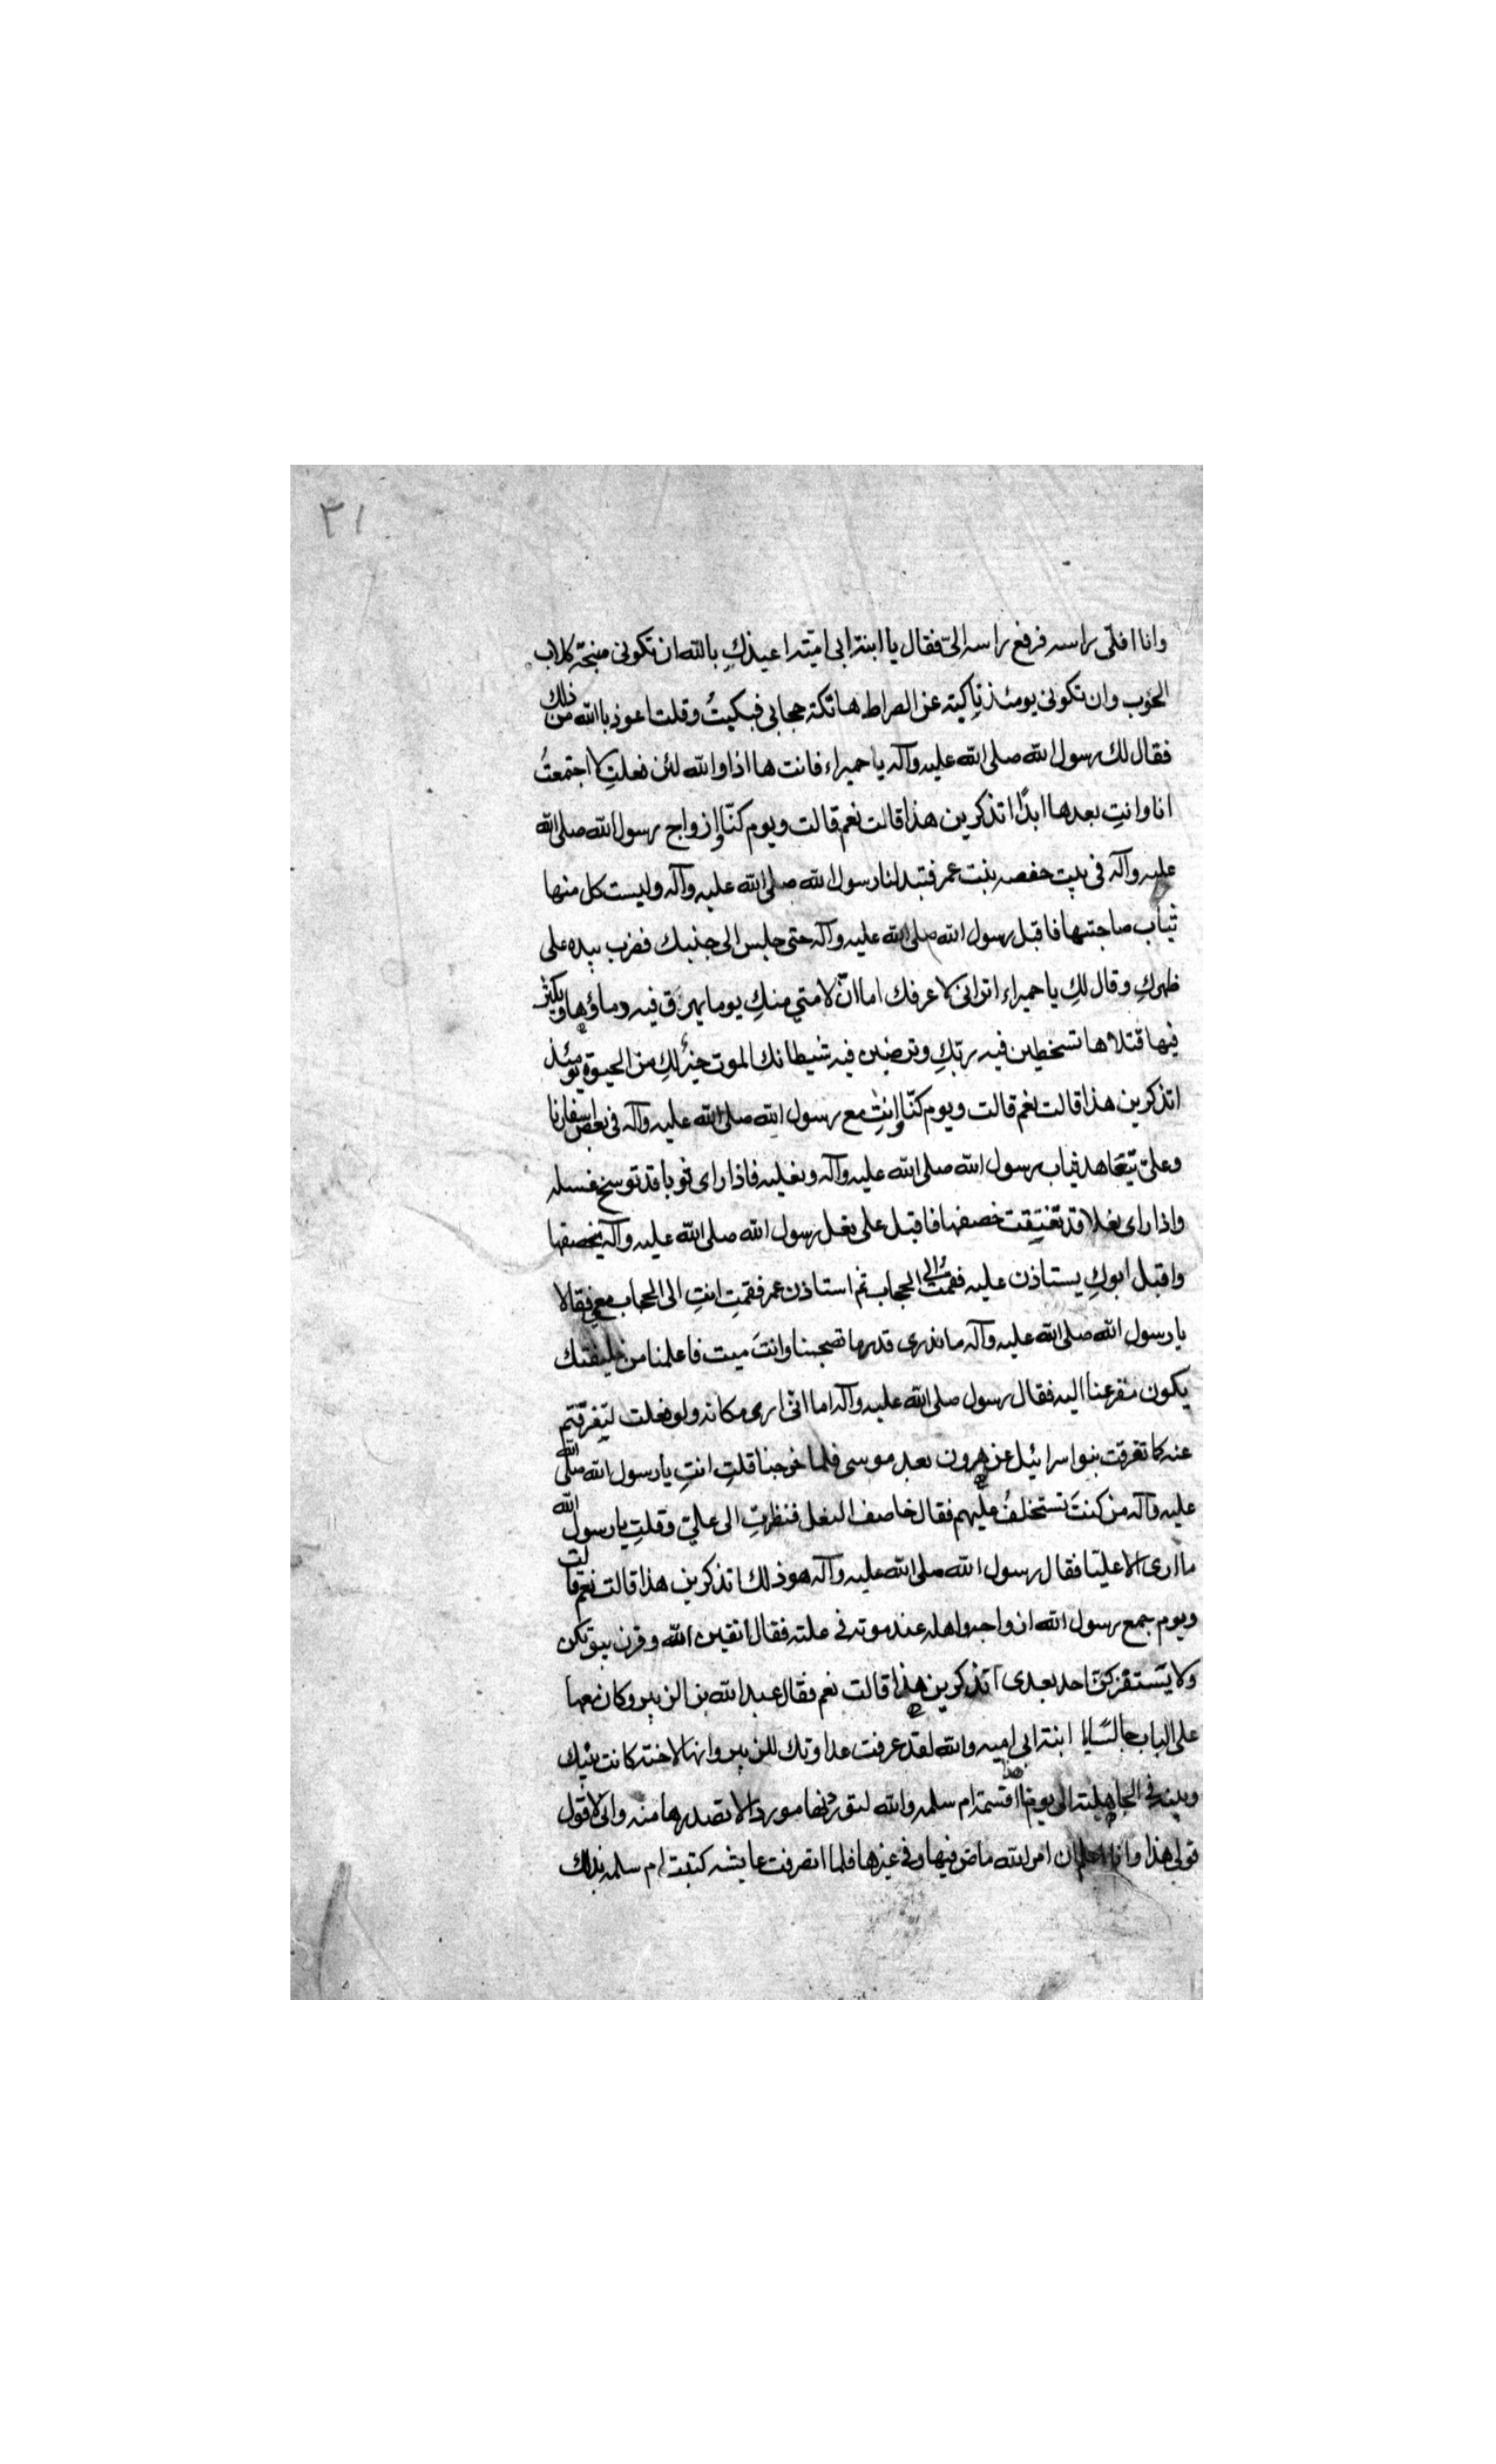 ٣١
وانا افلّى راسه فرفع راسه الىّ فقال يا ابنة ابى اميّة اعيذكِ بالله ان تكونى منبحة كلاب
الحوب وان تكونى يومئذ ناكبة عن الصراط هاتكة حجابى فبكيتُ وقلت اعوذ باالله من ذلك
فقال لك رسول الله صلى الله عليه وآله يا حميراء فانت هااذا والله لئن فعلتِ لا اجتمعتُ
انا وانتِ بعدها ابدًا اتذكرين هذا قالت نعم قالت ويوم كنّا ازواج رسول الله صلى الله
عليه وآله فى بيت حفصه بنت عمر فتبدلنا رسول الله صلى الله عليه وآله وليست كل منها
ثياب صاحبتها فاقبل رسول الله صلى الله عليه وآله حتى جلس الى جنبك فضرب بيده على
ظهركِ وقال لكِ يا حميراء اترانى لا عرفك اما انّ لامتي منكِ يوما يهرَق فيه دماؤها ويكثر
فيها قتلاها تسخطين فيه ربّكِ وترضين فيه شيطانك الموت خيرٌ لكِ من الحيوة يومئذ
اتذكرين هذا قالت نعم قالت ويوم كنّا وانتِ مع رسول الله صلى الله عليه وآله فى بعض اسفارنا
وعلىّ يتعاهد ثياب رسول الله صلى الله عليه وآله ونعليه فاذا راى ثوبا قد توسخ غسله
واذا راى نعلا قد تفتقت خصفها فاقبل على نعل رسول الله صلى الله عليه وآله يخصفها
واقبل ابوكِ يستاذن عليه فقمتُ الى الحجاب ثم استاذن عمر فقمتِ انتِ الى الحجاب معى فقالا
يا رسول الله صلى الله عليه وآله ما ندرى قدر ما تصحبنا وانتَ ميت فاعلمنا من خليفتك
يكون مفزعنا اليه فقال رسول صلى الله عليه وآله اما انّى ارى مكانه ولو فعلت لتفرقتم
عنه كما تفرقت بنو اسرائيل عن هرون بعد موسى فلما خرجنا قلتِ انتِ يا رسول الله صلى الله
عليه وآله من كنتَ تستخلفُ عليهم فقال خاصف النعل فنظرتِ الى علىّ وقلتِ يا رسول الله
ما ارى الا عليّا فقال رسول الله صلى الله عليه وآله هو ذلك اتذكرين هذا قالت نعم قالت
ويوم جمع رسول الله ازواجه واهله عند موته فى علته فقال اتقين الله وقرن بيوتكن
ولا يستفزكنّ احد بعدى اتذكرين هذا قالت نعم فقال عبد الله بن الزبير وكان معها
على الباب جالسًا يا ابنة ابى اميه والله لقد عرفت عداوتك للزبير وانها لاخته كانت بينك
وبينه فى الجاهلية الى يومنا هذا اقسمة ام سلمه والله لتوردنها موردا لا تصدرها منه وانى لاقول
قولى هذا وانا اعلم ان امر الله ماض فيها وفى غيرها فلما انصرفت عايشه كتبت ام سلمه بذلك